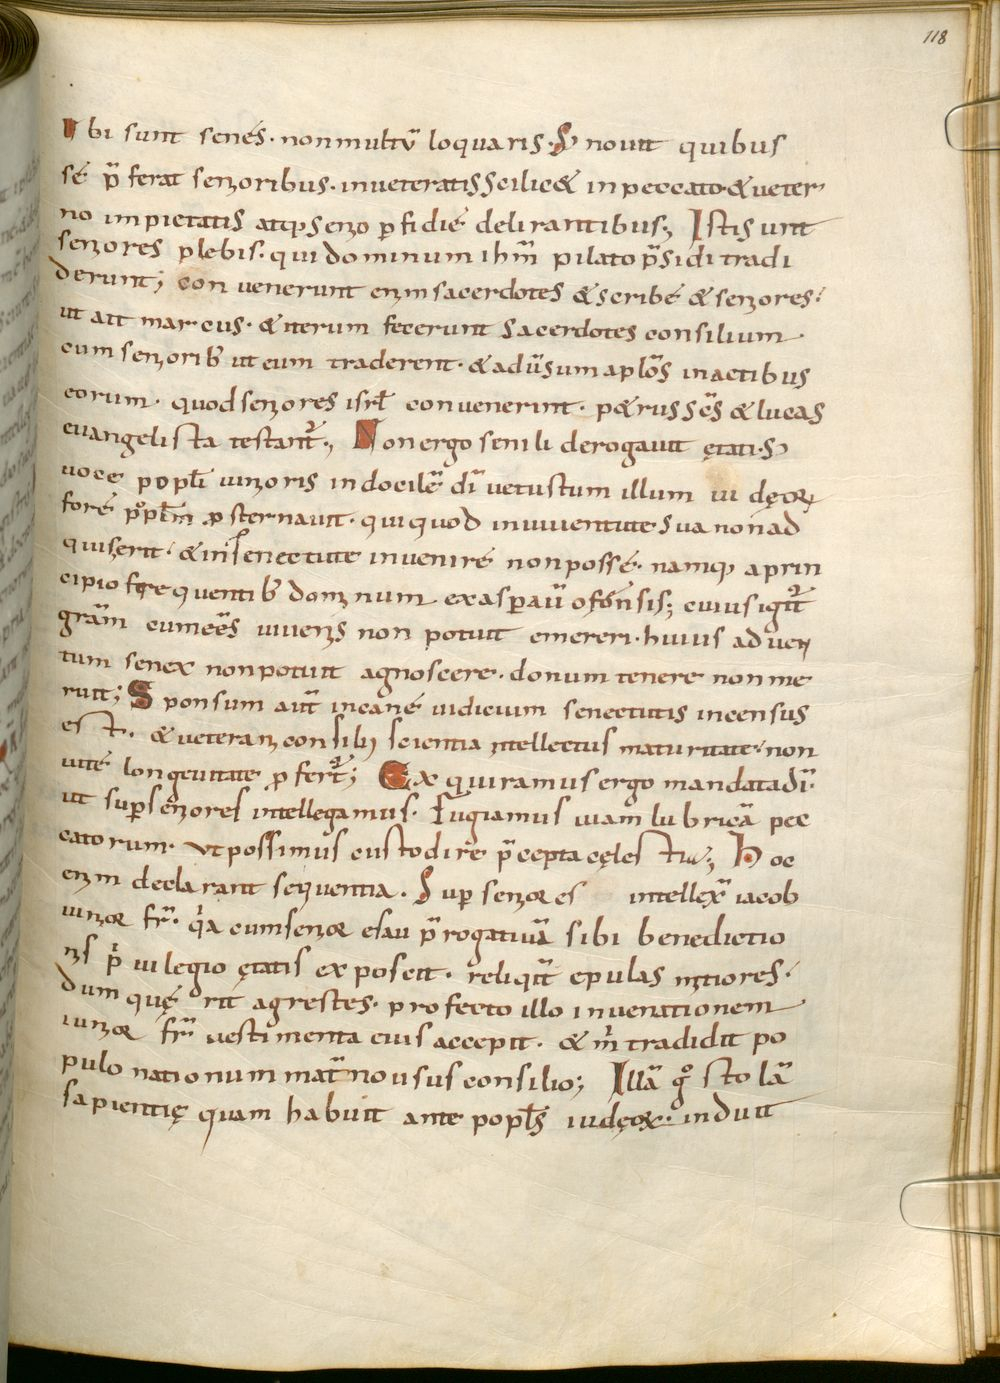 118
Vbi sunt senes. non multū loquaris. S; nouit quibus
sé p̄ferat senioribus. inueteratis scilic& in peccato. & ueter
no impietatis atq; senio ꝑfidié delirantibus; Isti sunt
seniores plebis. qui dominum ihm̄ pilato p̄sidi tradi
derunt; con uenerunt enim sacerdotes & scribé & seniores.
ut ait marcus. & iterum fecerunt sacerdotes consilium
cum seniorib; ut eum traderent. & aduersum aplōs in actibus
eorum. quod seniores isrł conuenerunt. p&rus sēs & lucas
euangelista testant̄. Non ergo senili derogauit ętati. S;
uoce popłi iunioris indocilē dī uetustum illum iudęoꝝ
foré popłm ꝓsternauit. qui quod in iuuentute sua non ad
quiserit. & in senectute inueniré non possé. namq; a prin
cipio frequentib; dominum exasperauit offensis; cuius igit̄
grām eumēēs iuuenis non potuit emereri. huius aduen
tum senex non potuit agnoscere. donum tenere non me
ruit; Sponsum aut̄ in cané iudicium senectutis in census
est. & ueterani consilii scientia intellectus maturitate. non
uité longeuitate ꝓfert̄; Exquiramus ergo mandata dī.
ut super seniores intellegamus. Fugiamus uiam lubricā pec
catorum. ut possimus custodire p̄cepta cęlestia; Hoc
enim declarant sequentia. Super seniores intellex̄ iacob
iunior fr̄. q̄a cum senior esau p̄rogatiuā sibi benedictio
nis priuilegio ętatis exposcit. reliquit epulas mitiores.
dum quęrit agrestes. profecto illo in uenationem
iunior fr̄ uestimenta eius accepit. & m̄ tradidit po
pulo nationum mat̄no usus consilio; Illā g̊ stolā
sapientię quam habuit ante popłs iudęoꝝ. induit